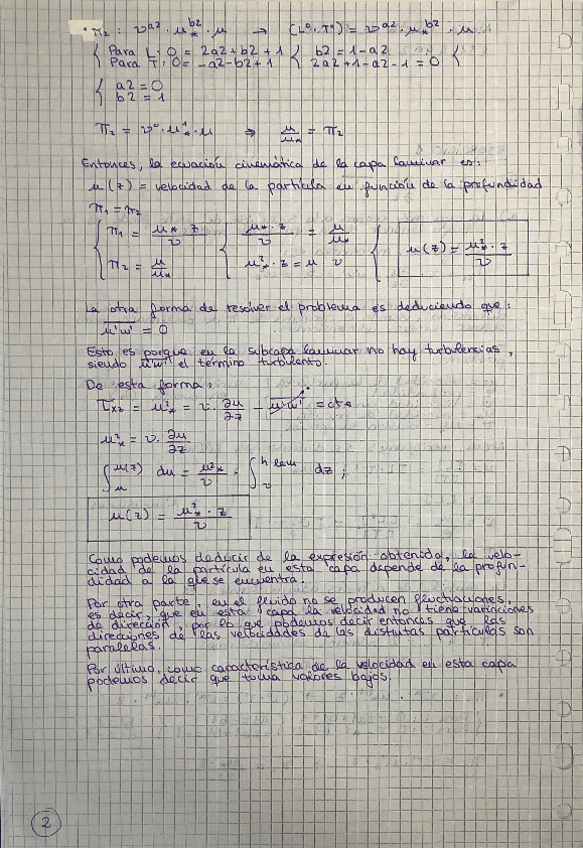 · π₂ : υ^a2 · u*^b2 · u → (L⁰ · T⁰) = υ^a2 · u*^b2 · u
{ Para L: 0 = 2a2 + b2 + 1 { b2 = 1 - a2 {
Para T: 0 = -a2 - b2 + 1 2a2 + 1 - a2 - 1 = 0
{ a2 = 0
b2 = 1
π₂ = υ⁰ · u*¹ · u ⇒ u/u* = π₂
Entonces, la ecuación cinemática de la capa laminar es:
u(z) = velocidad de la partícula en función de la profundidad
π₁ = π₂
{ π₁ = u* · z / υ { u* · z / υ = u/u* { u(z) = u*² · z / υ
π₂ = u/u* u*² · z = u υ
La otra forma de resolver el problema es deduciendo que:
u'w' = 0
Esto es porque en la subcapa laminar no hay turbulencias,
siendo u'w' el término turbulento.
De esta forma:
τxz = u*² = υ · ∂u/∂z - u'w' = cte
u*² = υ · ∂u/∂z
∫ u(z) du = u*²/υ · ∫ h lam dz ;
u(z) = u*² · z / υ
Como podemos deducir de la expresión obtenida, la velo-
cidad de la partícula en esta capa depende de la profun-
didad a la que se encuentra.
Por otra parte, en el fluido no se producen fluctuaciones,
es decir, que en esta capa la velocidad no tiene variaciones
de dirección, por lo que podemos decir entonces que las
direcciones de las velocidades de las distintas partículas son
paralelas.
Por último, como característica de la velocidad en esta capa
podemos decir que toma valores bajos.
2